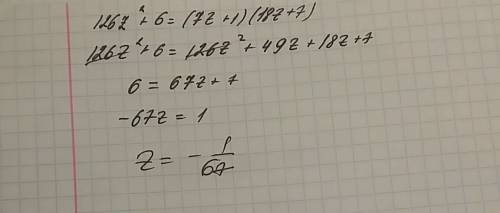 126z² + 6 = (7z + 1)(18z + 7)
126z² + 6 = 126z² + 49z + 18z + 7
6 = 67z + 7
-67z = 1
z = - 1/67